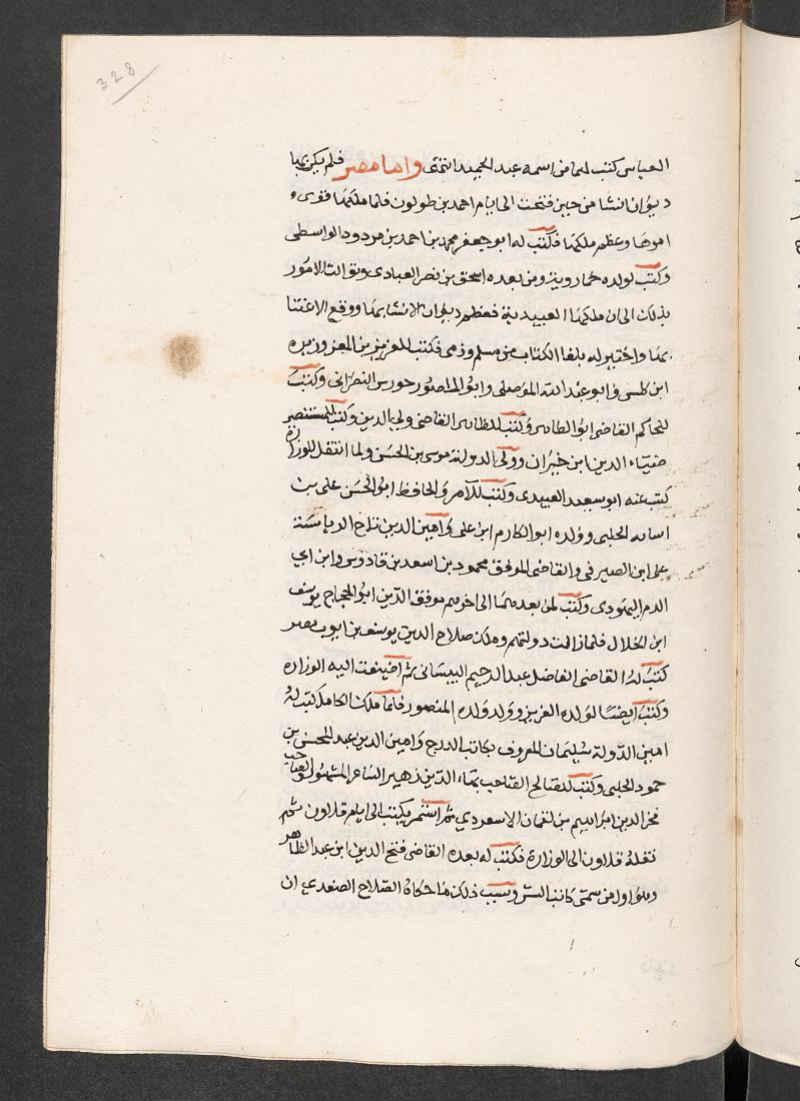 328
العباس كتب لهما من اسمه عبد الحميد انتهى واما مصر فلم يكن بها
ديوان انشا من حين فتحت الى ايام احمد بن طولون فلما ملكها قوى
امرها وعظم ملكها فكتب له ابو جعفر محمد بن احمد بن مردود الواسطى
وكتب لولده خمارويه ومن بعده اسحق بن نصر العبادى وتوالت الامور
بذلك الى ان ملكها العبيدية فعظم ديوان الانشا بها ووقع الاعتنا
بها واختير له بلغا الكتاب من مسلم وذمى فكتب للعزيز بن المعز وزيره
ابن كلس وابو عبد الله الموصلى وابو المنصور جورس النصرانى وكتب
للحاكم القاضى ابو الطاهر وكتب للظاهر القاضى ولى الدين وكتب للمستنصر
ضياء الدين ابن خيران وولى الدولة موسى بن الحسن ولما انتقل للوزارة
كتب عنه ابو سعيد العبيدى وكتب للآمر والحافظ ابو الحسن على بن
اسامه الحلبى وولده ابو المكارم ابن على وامين الدين تاج الدياسة
على ابن الصيرفى والقاضى الموفق محمود بن اسعد بن قادوس وابن ابى
الدم اليهودى وكتب لمن بعدهما الى اخرهم موفق الدين ابو الحجاج يوسف
ابن الخلال فلما زالت دولتهم وملك صلاح الدين يوسف بن ايوب مصر
كتب له القاضى الفاضل عبد الرحيم البيسانى ثم اضيفت اليه الوزاره
وكتب ايضا لولده العزيز وولد ولده المنصور فلما ملك الكامل كتب له
امين الدولة سليمان المعروف بكاتب الدرج وامين الدين عبد المحسن بن
حمود الحلبى وكتب للصالح الصاحب بهاء الدين زهير الشاعر المشهور والصاحب
فخر الدين ابراهيم بن لقمان الاسعردي ثم استمر يكتب الى ايام قلاون ثم
نقله قلاون الى الوزارة فكتب له بعده القاضى فتح الدين ابن عبد الظاهر
وهو اول من سمى كاتب السر وسبب ذلك ما حكاه الصلاح الصفدي ان